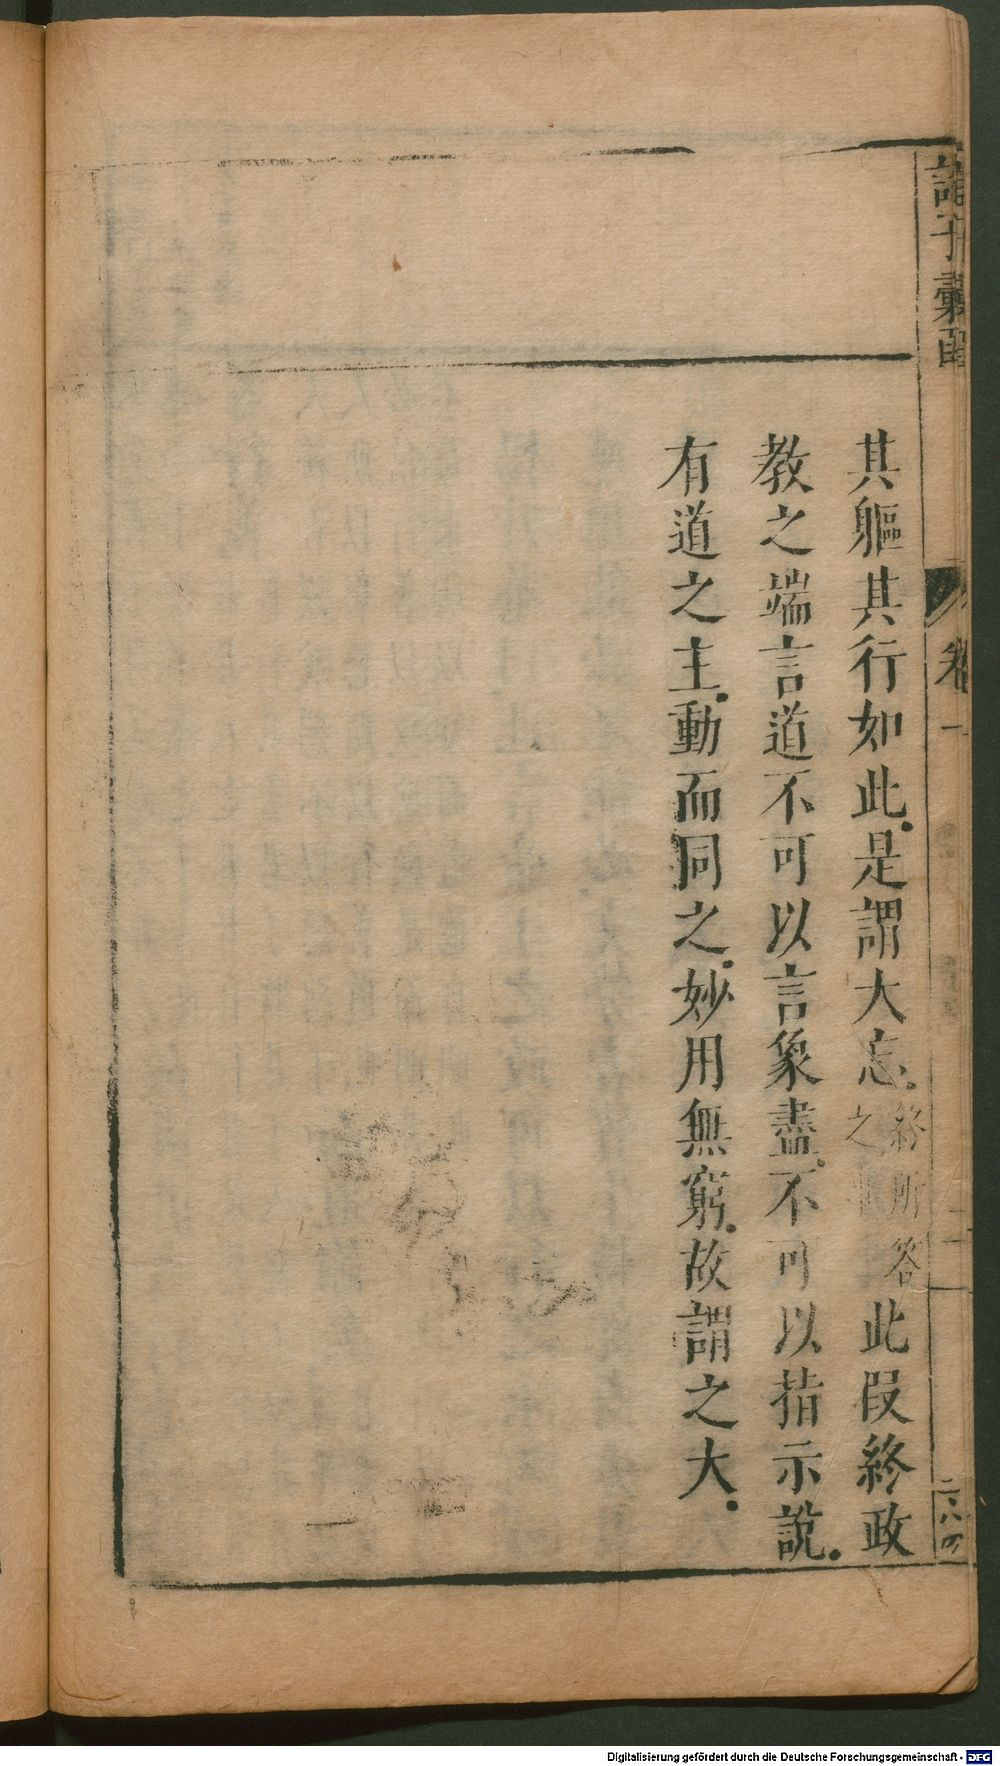 諸子彙函
卷一
二
二六四
其軀其行如此是謂大忘終所答之此段終政
教之端言道不可以言象盡不可以指示說
有道之主動而同之妙用無窮故謂之大
Digitalisierung gefördert durch die Deutsche Forschungsgemeinschaft - DFG